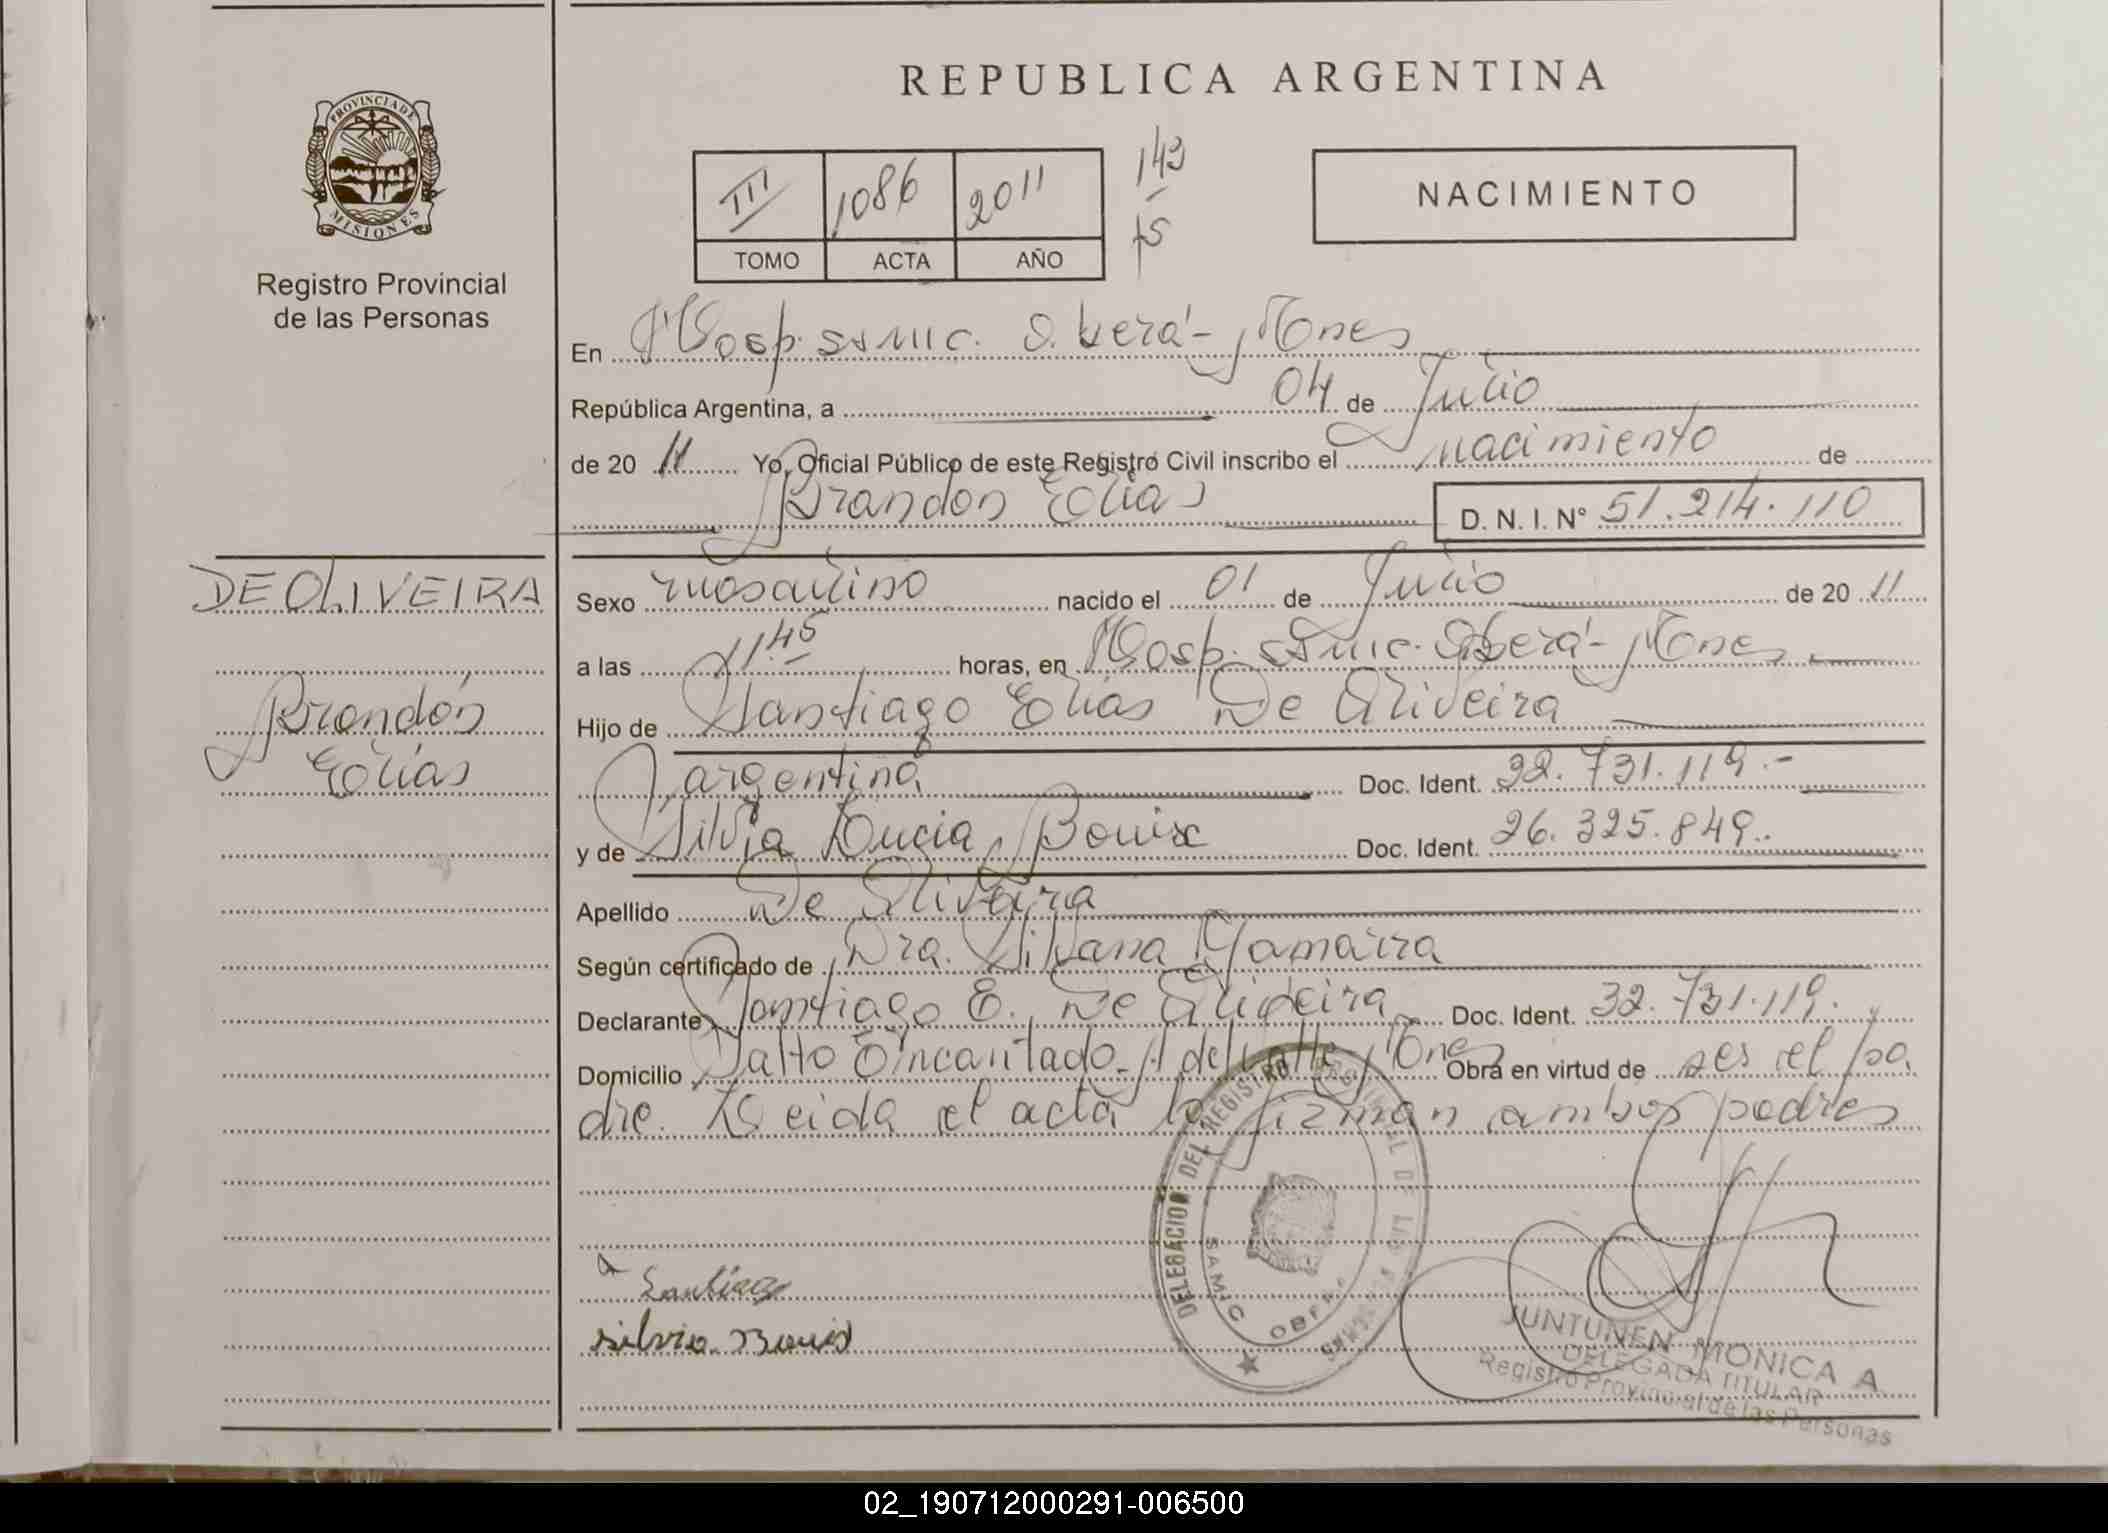 REPUBLICA ARGENTINA
PROVINCIA DE
MISIONES
Registro Provincial
de las Personas
III 1086 2011
TOMO ACTA AÑO
143
15
NACIMIENTO
En Hosp. SAMIC. Oberá - Mnes
República Argentina, a 04 de Julio
de 20 11 Yo, Oficial Público de este Registro Civil inscribo el nacimiento de
Brandon Elias D. N. I. N° 51.214.110
DE OLIVEIRA
Brandón
Elías
Sexo masculino nacido el 01 de Julio de 20 11
a las 11.45 horas, en Hosp. SAMIC. Oberá - Mnes
Hijo de Santiago Elias De Oliveira
argentina Doc. Ident. 32.731.119.-
y de Silvia Lucia Bouix Doc. Ident. 26.325.849.
Apellido De Oliveira
Según certificado de Dra. Silvana
Declarante Santiago E. De Oliveira Doc. Ident. 32.731.119.
Domicilio Salto Encantado - A del Valle Mnes Obra en virtud de ser el pa
dre. Leida el acta la firman ambos padres
Santiago
Silvia Bouix
DELEGACION DEL REGISTRO PROVINCIAL DE LAS PERSONAS
SAMIC OBERA
JUNTUNEN MONICA A
DELEGADA TITULAR
Registro Provincial de las Personas
02_190712000291-006500